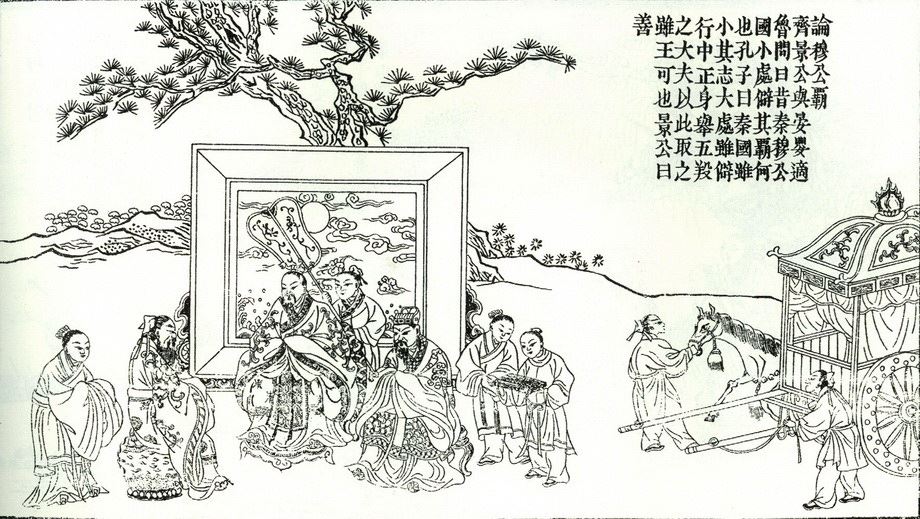 論穆公霸
齊景公與晏嬰適
魯問曰昔秦穆公
國小處僻其霸何
也孔子曰秦國雖
小其志大處雖僻
行中正身舉五羖
之大夫以此取之
雖王可也景公曰
善